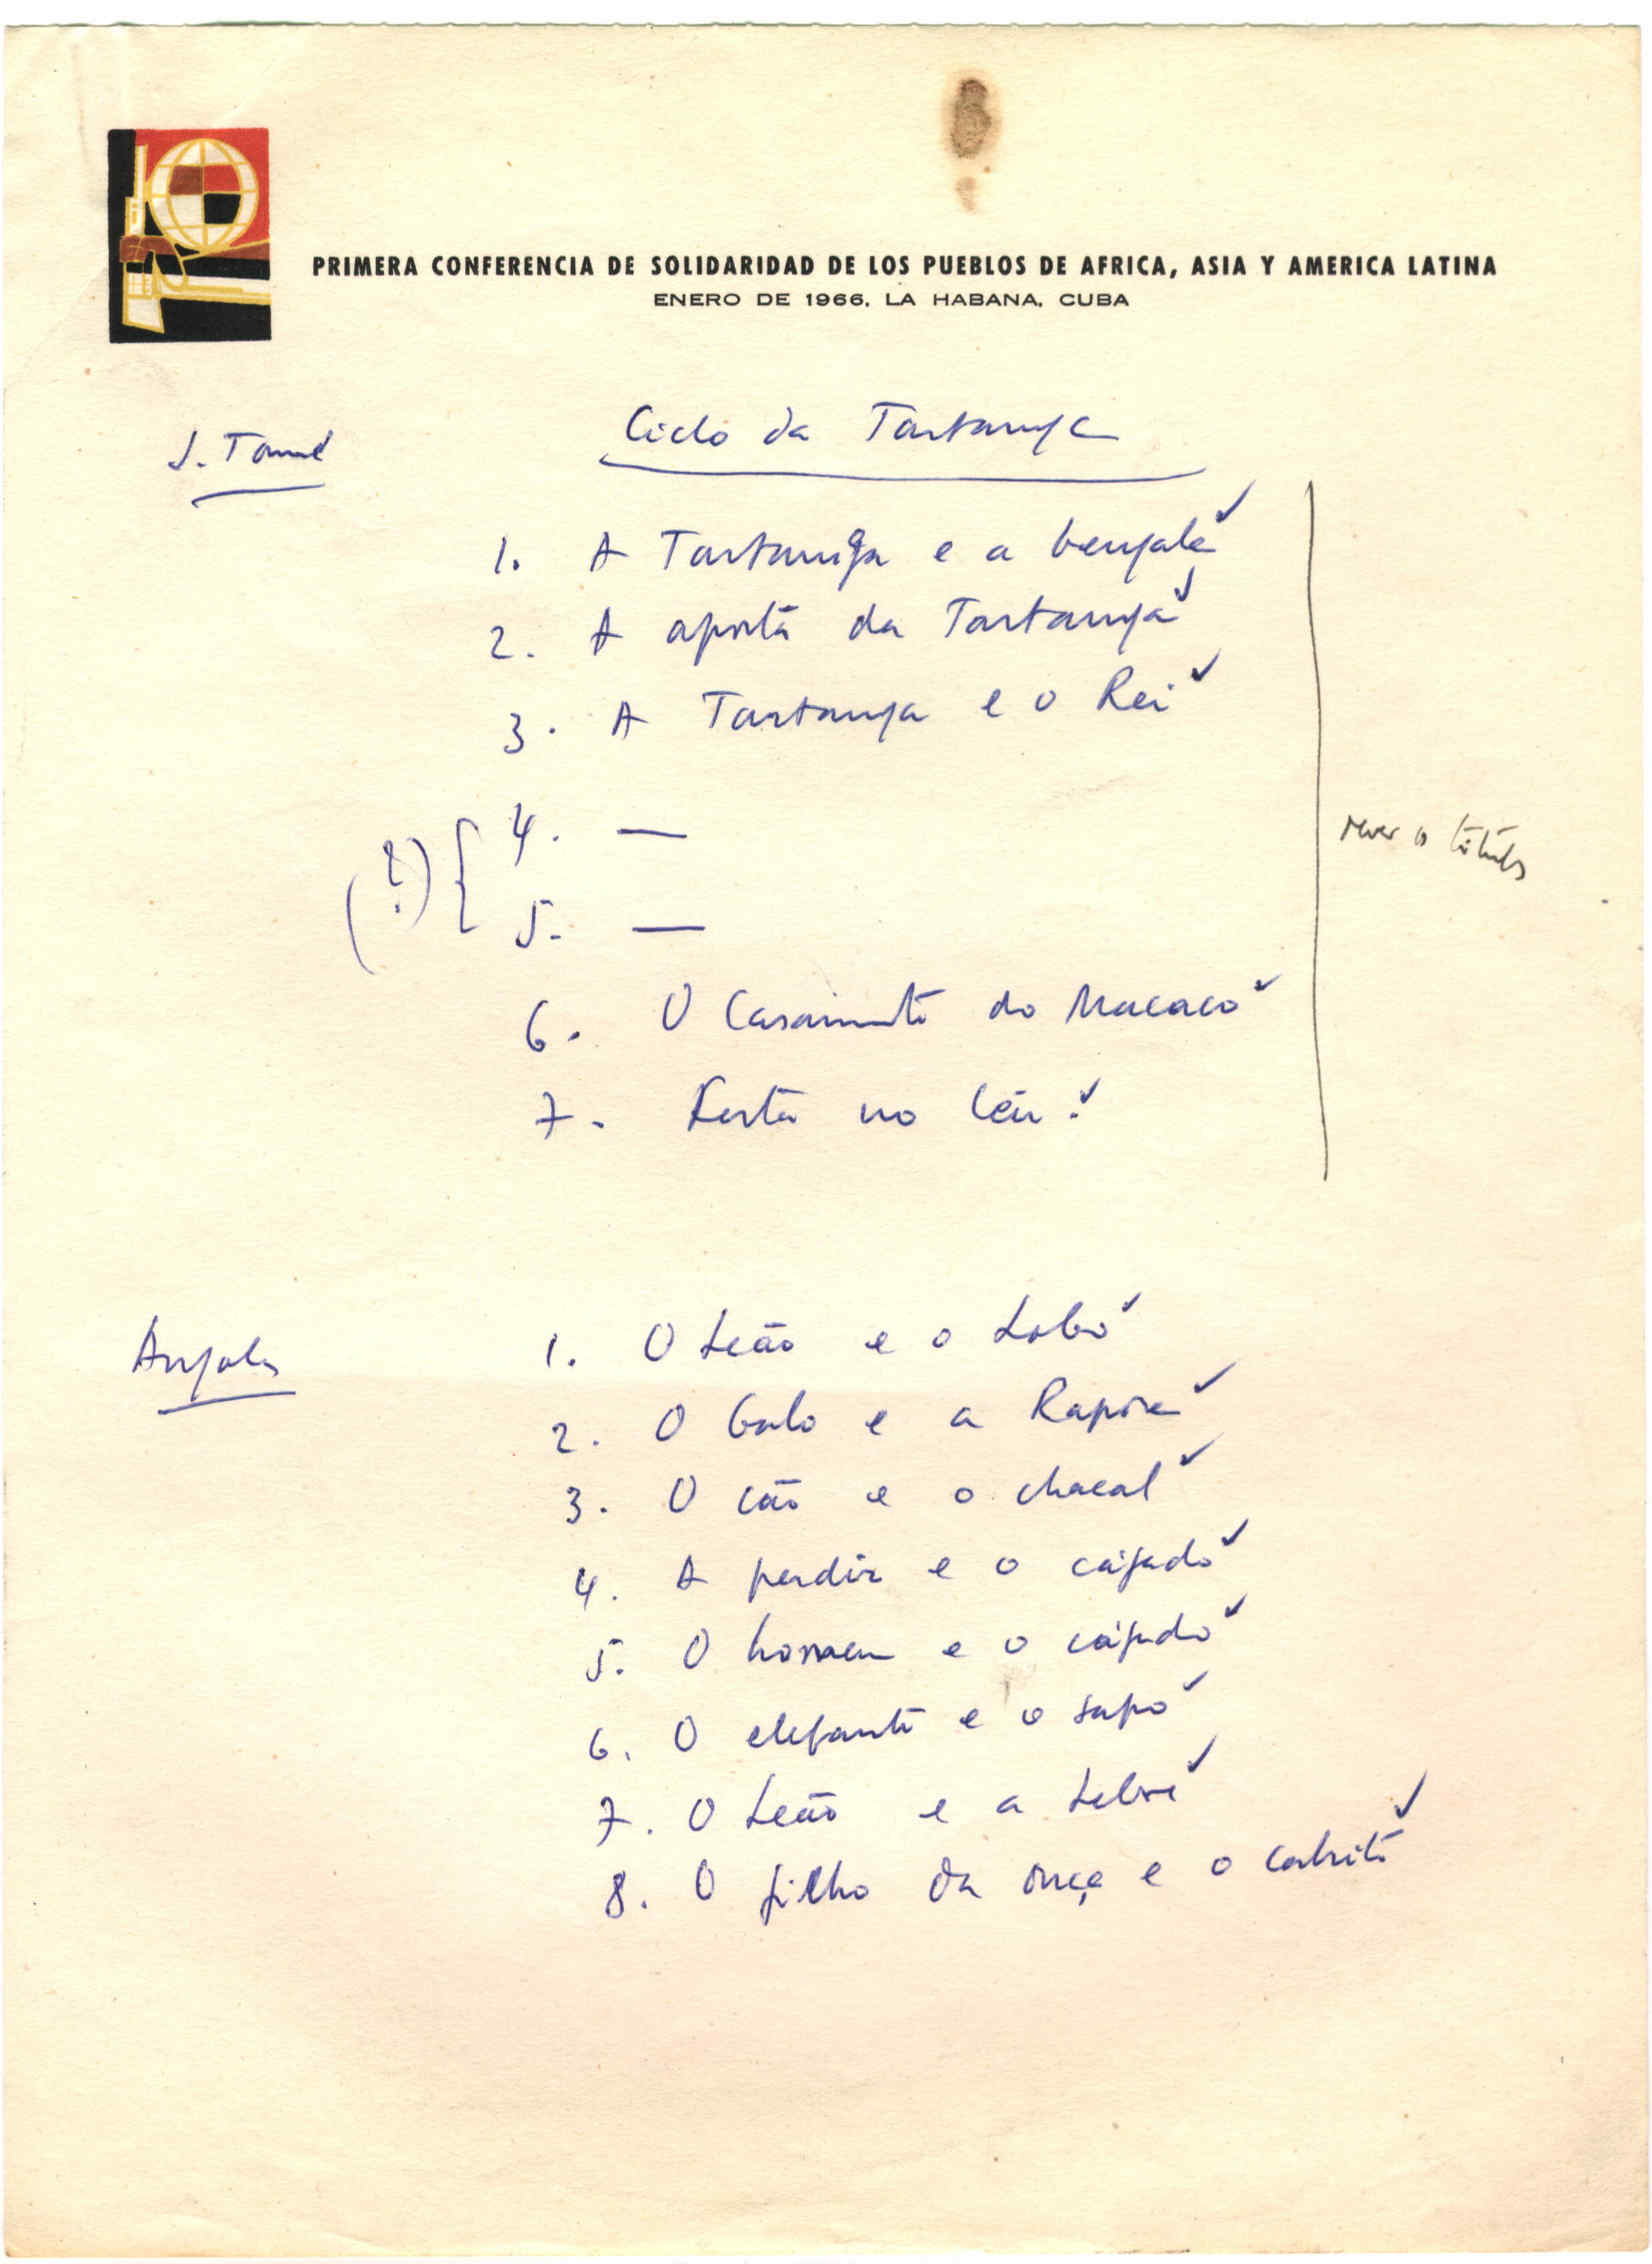 PRIMERA CONFERENCIA DE SOLIDARIDAD DE LOS PUEBLOS DE AFRICA, ASIA Y AMERICA LATINA
ENERO DE 1966, LA HABANA, CUBA
S. Tomé
Ciclo da Tartaruga
1. A Tartaruga e a bengala ✓
2. A aposta da Tartaruga ✓
3. A Tartaruga e o Rei ✓
(?) { 4. —
5. —
rever os títulos
6. O Casamento do Macaco ✓
7. Festa no Céu. ✓
Angola
1. O Leão e o Lobo ✓
2. O Galo e a Raposa ✓
3. O cão e o chacal ✓
4. A perdiz e o cágado ✓
5. O homem e o cágado ✓
6. O elefante e o sapo ✓
7. O Leão e a Lebre ✓
8. O filho da onça e o cabrito ✓